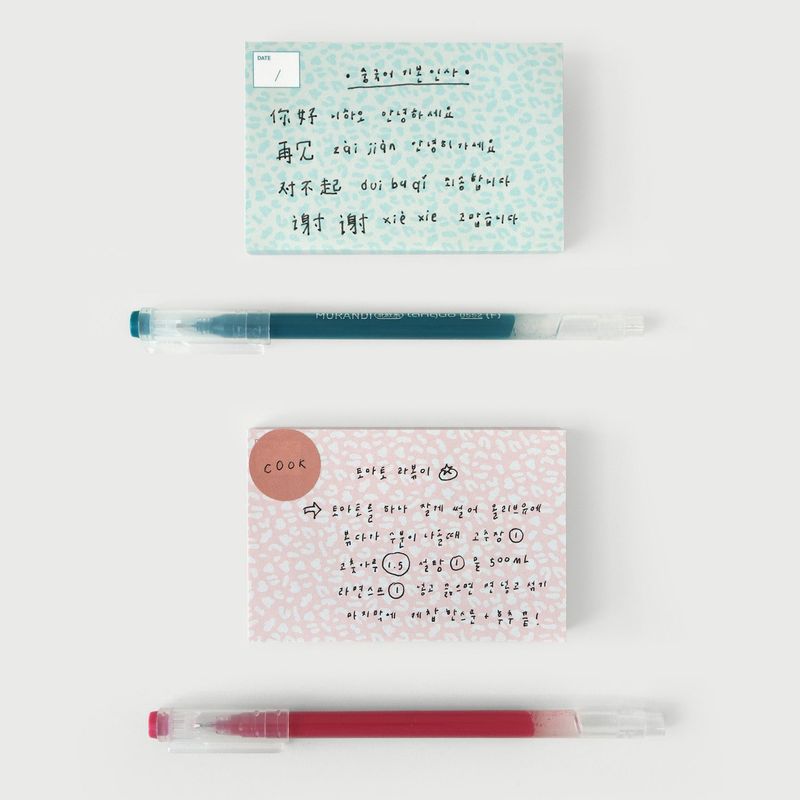 DATE
/
• 중국어 기본 인사 •
你好 니하오 안녕하세요
再见 zài jiàn 안녕히가세요
对不起 dui bu qǐ 죄송합니다
谢谢 xiè xie 고맙습니다
MORANDI tangguo (F)
COOK
토마토 라볶이
⇨ 토마토를 하나 잘게 썰어 올리브유에
볶다가 수분이 나올때 고추장 1
고춧가루 1.5 설탕 1 물 500mL
라면스프 1 넣고 끓으면 면 넣고 섞기
마지막에 케찹 한스푼 + 후추 끝!